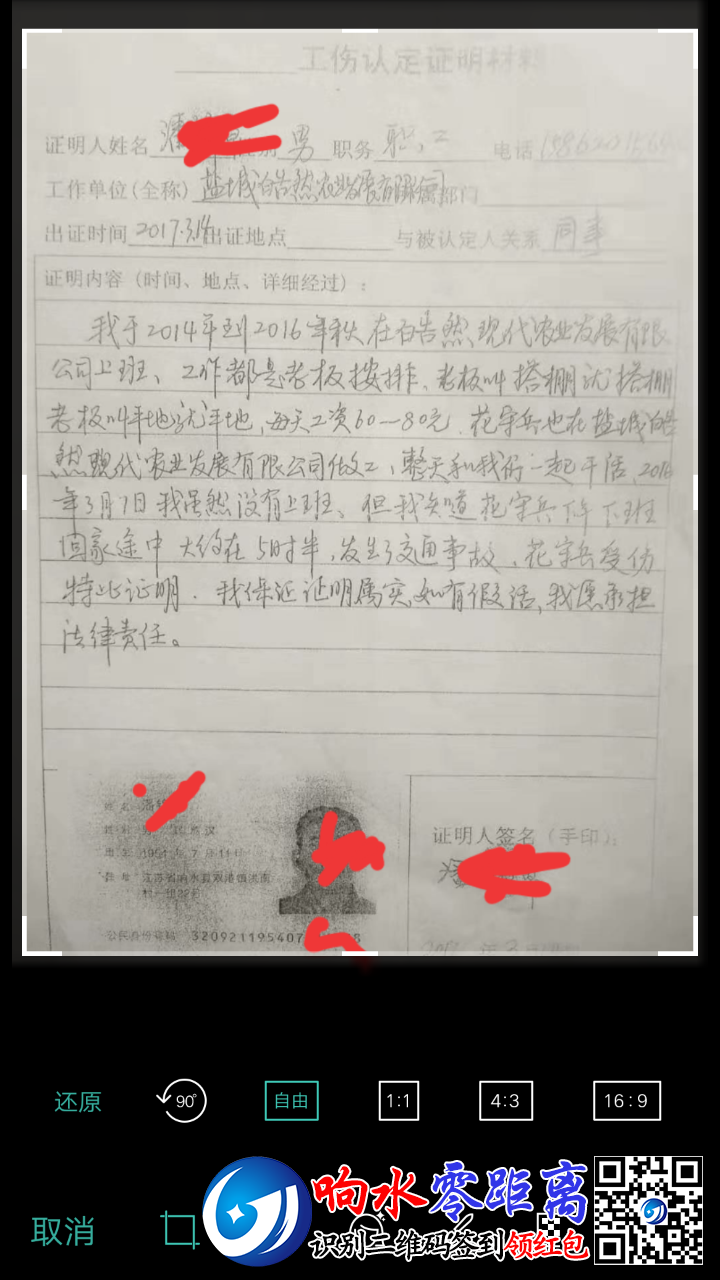 工伤认定证明材料
证明人姓名 男 职务 职工 电话
工作单位(全称) 盐城皓然农业发展有限公司 部门
出证时间 2017.3.14 出证地点 与被认定人关系 同事
证明内容（时间、地点、详细经过）：
我于2014年到2016年秋在皓然现代农业发展有限
公司上班、工作都是老板按排、老板叫搭棚就搭棚
老板叫平地就平地,每天工资60—80元.花守兵也在盐城皓
然现代农业发展有限公司做工,整天和我们一起干活,2016
年3月7日我虽然没有上班、但我知道花守兵下午下班
回家途中 大约在5时半,发生了交通事故、花守兵受伤
特此证明.我保证证明属实,如有假话,我愿承担
法律责任。
姓名
汉
1951年7月11日
江苏省响水县双港镇
证明人签名（手印）：
公民身份号码 320921195407
还原
90°
自由
1:1
4:3
16:9
取消
响水零距离
识别二维码签到领红包